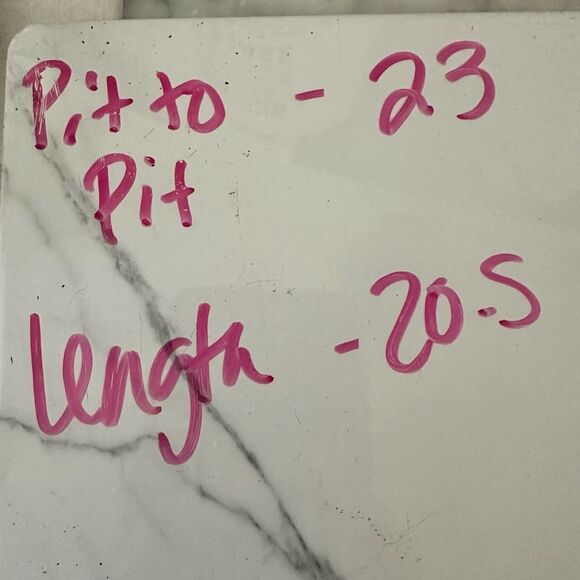 Pit to - 23
Pit
length - 20.5